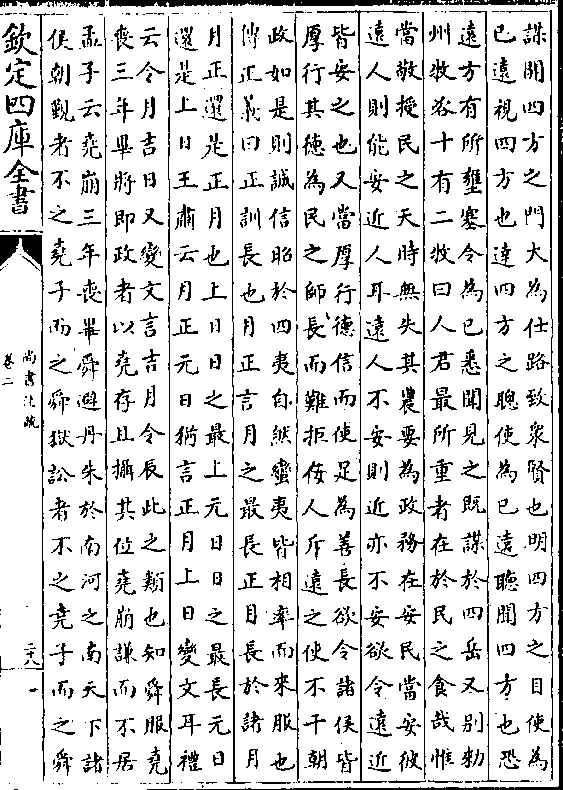 謀開四方之門大為仕路致衆賢也明四方之目使為
已遠視四方也達四方之聰使為已遠聽聞四方也恐
遠方有所壅塞令為已悉聞見之既謀於四岳又别勅
州牧咨十有二牧曰人君最所重者在於民之食哉惟
當敬授民之天時無失其農要為政務在安民當安彼
遠人則能安近人耳遠人不安則近亦不安欲令遠近
皆安之也又當厚行德信而使足為善長欲令諸侯皆
厚行其德為民之師長而難拒佞人斥遠之使不干朝
政如是則誠信昭於四夷自然蠻夷皆相率而來服也
傳正義曰正訓長也月正言月之最長正月長於諸月
月正還是正月也上日日之最上元日日之最長元日
還是上日王肅云月正元日猶言正月上日變文耳禮
云令月吉日又變文言吉月令辰此之類也知舜服堯
喪三年畢將即政者以堯存且攝其位堯崩謙而不居
孟子云堯崩三年喪畢舜避丹朱於南河之南天下諸
侯朝覲者不之堯子而之舜獄訟者不之堯子而之舜
欽定四庫全書
尚書注疏
卷二
二十八